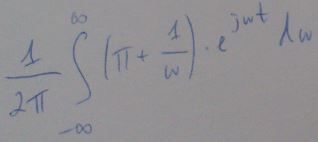 1/2π ∫_{-∞}^{∞} (π + 1/w) · e^{jwt} dw